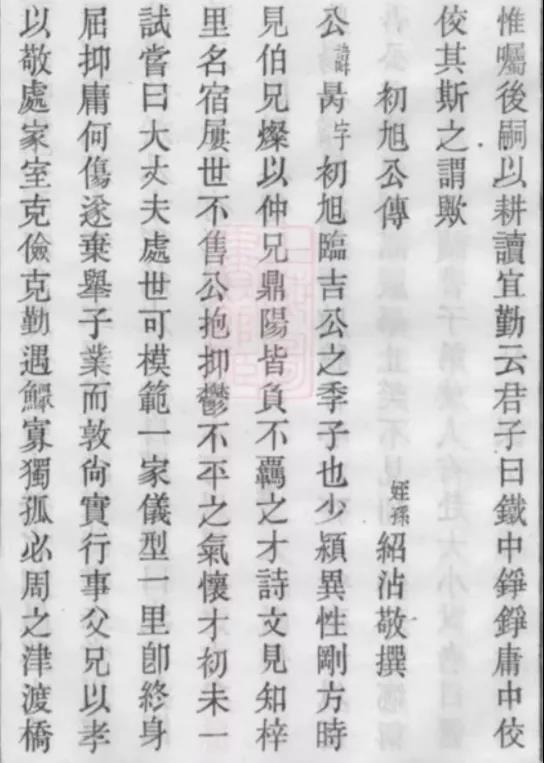 惟囑後嗣以耕讀宜勤云君子曰鐵中錚錚庸中佼
佼其斯之謂歟
初旭公傳
姪孫紹沾敬撰
公諱昺字初旭臨吉公之季子也少穎異性剛方時
見伯兄燦以仲兄鼎陽皆負不羈之才詩文見知梓
里名宿屢世不售公抱抑鬱不平之氣懷才初未一
試嘗曰大丈夫處世可模範一家儀型一里卽終身
屈抑庸何傷遂棄舉子業而敦尙實行事父兄以孝
以敬處家室克儉克勤遇鰥寡獨孤必周之津渡橋